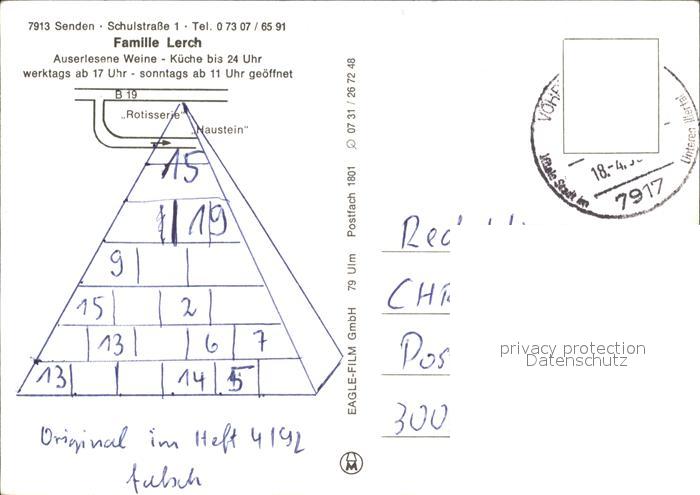 7913 Senden · Schulstraße 1 · Tel. 0 73 07 / 65 91
Famille Lerch
Auserlesene Weine - Küche bis 24 Uhr
werktags ab 17 Uhr - sonntags ab 11 Uhr geöffnet
B 19
„Rotisserie“
„Haustein“
15
19
9
15 2
13 6 7
13 14 5
Original im Heft 4/92
falsch
EAGLE-FILM GmbH 79 Ulm Postfach 1801 07 31 / 26 72 48
VÖHR
Unteres Illertal
18.-4.
7917
Stadt im
Red
CHR
Pos
300
privacy protection
Datenschutz